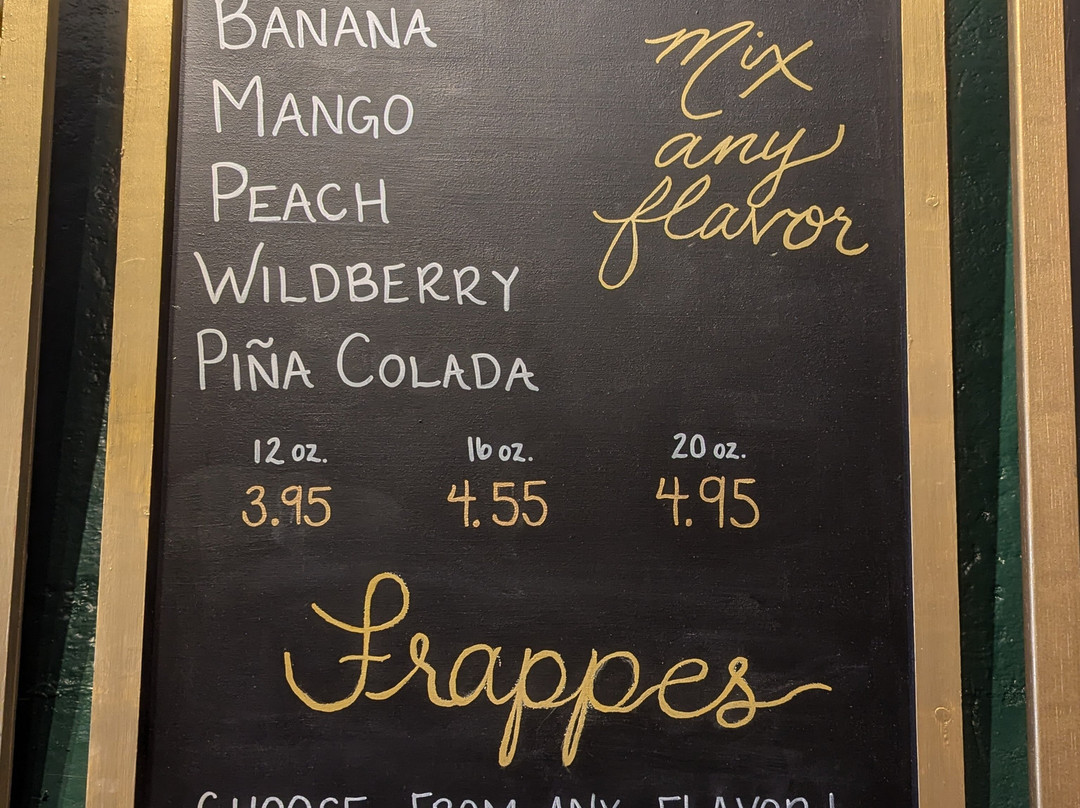 BANANA
MANGO
PEACH
WILDBERRY
PIÑA COLADA
Mix
any
flavor
12 oz. 16 oz. 20 oz.
3.95 4.55 4.95
Frappes
CHOOSE FROM ANY FLAVOR!